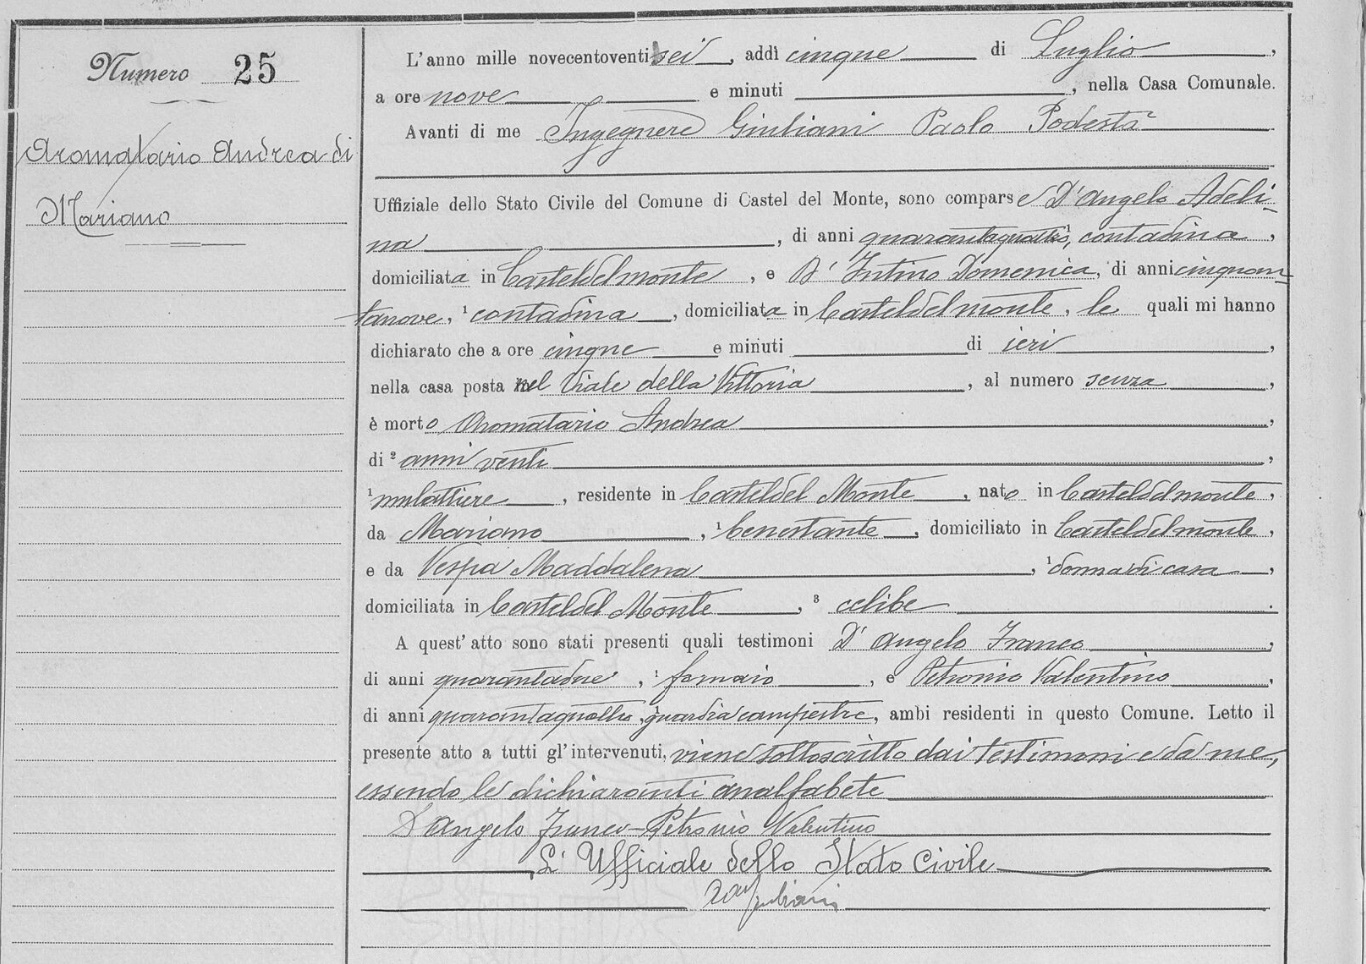 Numero 25
Aromatario Andrea di
Mariano
L'anno mille novecentoventisei, addì cinque di Luglio,
a ore nove e minuti , nella Casa Comunale.
Avanti di me Ingegnere Giuliani Paolo Podestà
Uffiziale dello Stato Civile del Comune di Castel del Monte, sono comparse D'Angelo Adeli-
na , di anni quarantaquattro, contadina,
domiciliata in Casteldelmonte, e D'Intino Domenica, di anni cinquan-
tanove, ¹ contadina, domiciliata in Casteldelmonte, le quali mi hanno
dichiarato che a ore cinque e minuti di ieri,
nella casa posta nel Viale della Vittoria, al numero senza,
è morto Aromatario Andrea,
di ² anni venti,
¹ mulattiere, residente in Casteldel Monte, nato in Casteldelmonte,
da Mariano, ¹ benestante, domiciliato in Casteldelmonte,
e da Vespa Maddalena, ¹ donna di casa,
domiciliata in Casteldel Monte, ³ celibe.
A quest'atto sono stati presenti quali testimoni D'Angelo Franco,
di anni quarantadue, ¹ fornaio, e Petronio Valentino,
di anni quarantaquattro, guardia campestre, ambi residenti in questo Comune. Letto il
presente atto a tutti gl'intervenuti, viene sottoscritto dai testimoni e da me,
essendo le dichiaranti analfabete
D'Angelo Franco - Petronio Valentino
L'Ufficiale dello Stato Civile
Giuliani